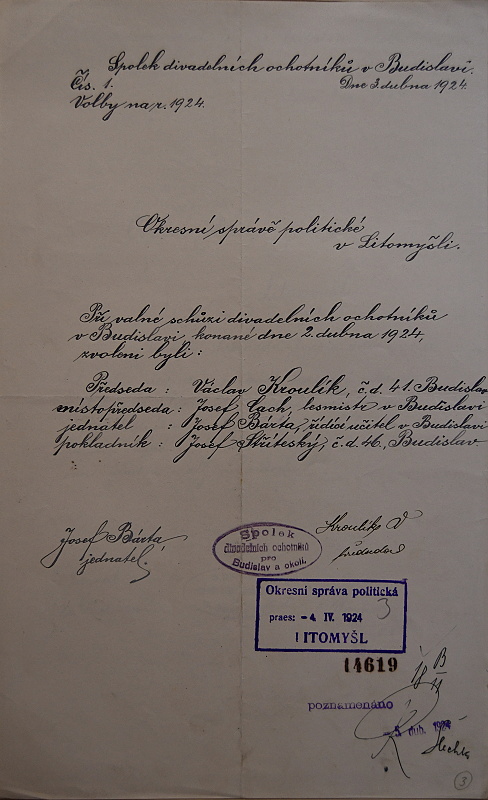 Spolek divadelních ochotníků v Budislavi.
Čís. 1. Dne 3. dubna 1924.
Volby na r. 1924.
Okresní správě politické
v Litomyšli.
Při valné schůzi divadelních ochotníků
v Budislavi konané dne 2. dubna 1924,
zvoleni byli:
Předseda : Václav Kroulík, č.d. 41. Budislav
místopředseda : Josef Cach, lesmistr v Budislavi
jednatel : Josef Bárta, řídící učitel v Budislavi
pokladník : Josef Stříteský, č.d. 46, Budislav.
Josef Bárta
jednatel.
Kroulík V
předseda
Spolek
divadelních ochotníků
pro
Budislav a okolí.
Okresní správa politická
3
praes: -4. IV. 1924
LITOMYŠL
14619
poznamenáno
-5. dub. 1924
3